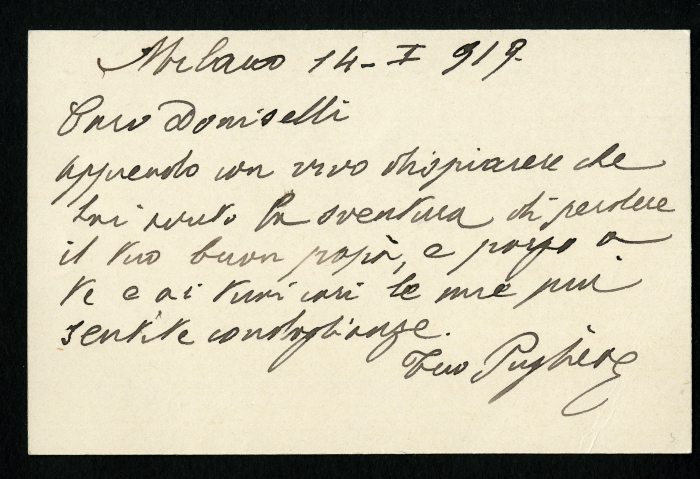 Milano 14-I 919.
Caro Doniselli
apprendo con vivo dispiacere che
hai avuto la sventura di perdere
il tuo buon papà, e porgo a
te e ai tuoi cari le mie più
sentite condoglianze.
Tuo